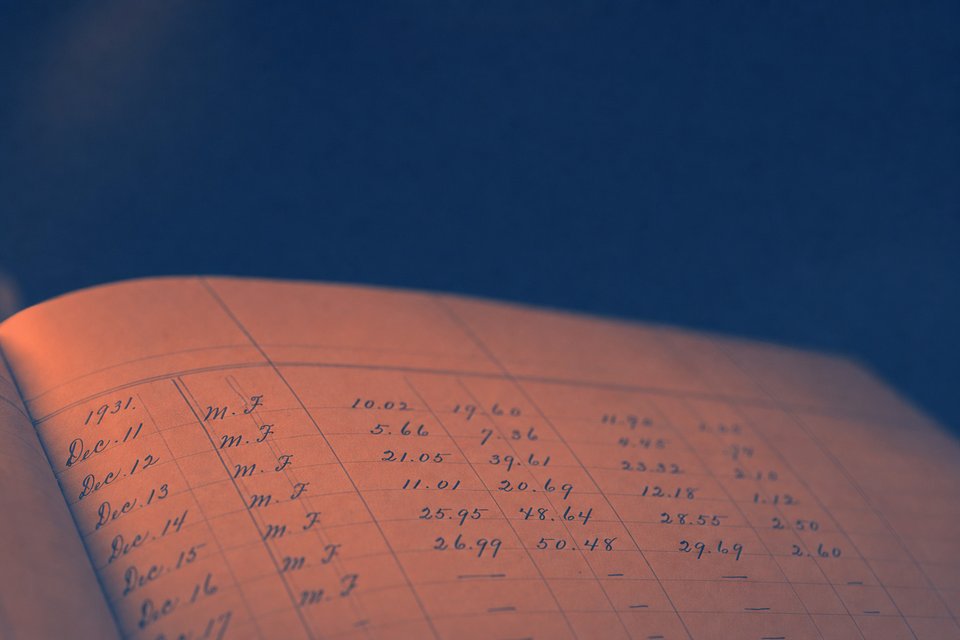 1931. M. F 10.02 19.60 11.90
Dec. 11 M. F 5.66 7.36 4.45 .74
Dec. 12 M. F 21.05 39.61 23.32 2.10
Dec. 13 M. F 11.01 20.69 12.18 1.12
Dec. 14 M. F 25.95 48.64 28.55 2.50
Dec. 15 M. F 26.99 50.48 29.69 2.60
Dec. 16 M. F — — — —
Dec. 17 — — — —